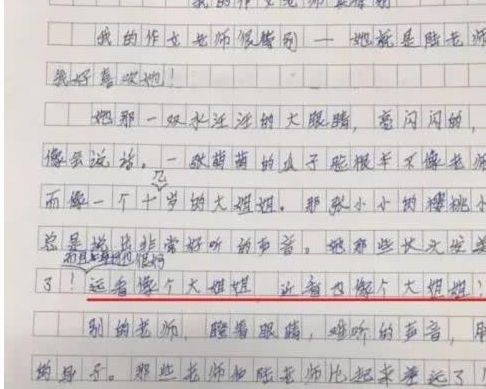 我的作文老师很特别
我的作文老师很特别一她就是陆老师
我好喜欢她！
她那一双水汪汪的大眼睛，亮闪闪的，
像会说话。一张萌萌的瓜子脸根本不像老师
几
而像一个十岁的大姐姐。那张小小的樱桃小
总是说出非常好听的声音。她那些长大发
而且身材也很好
了！远看像个大姐姐 近看也像个大姐姐！
别的老师，瞪着眼睛，难听的声音，
的身子。那些老师和陆老师比起来差远了！